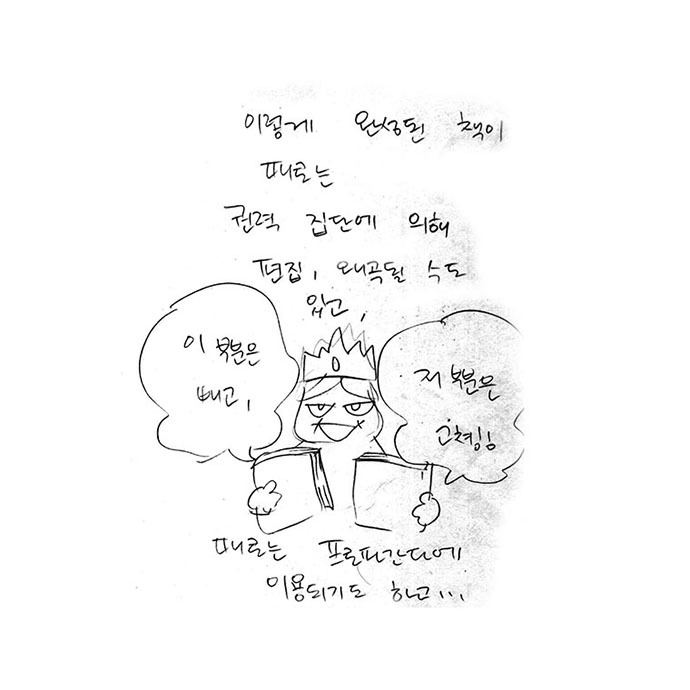 이렇게 완성된 책이
때로는
권력 집단에 의해
편집, 왜곡될 수도
있고,
이 부분은
빼고,
저 부분은
고쳐잉
때로는 프로파간다에
이용되기도 하고...